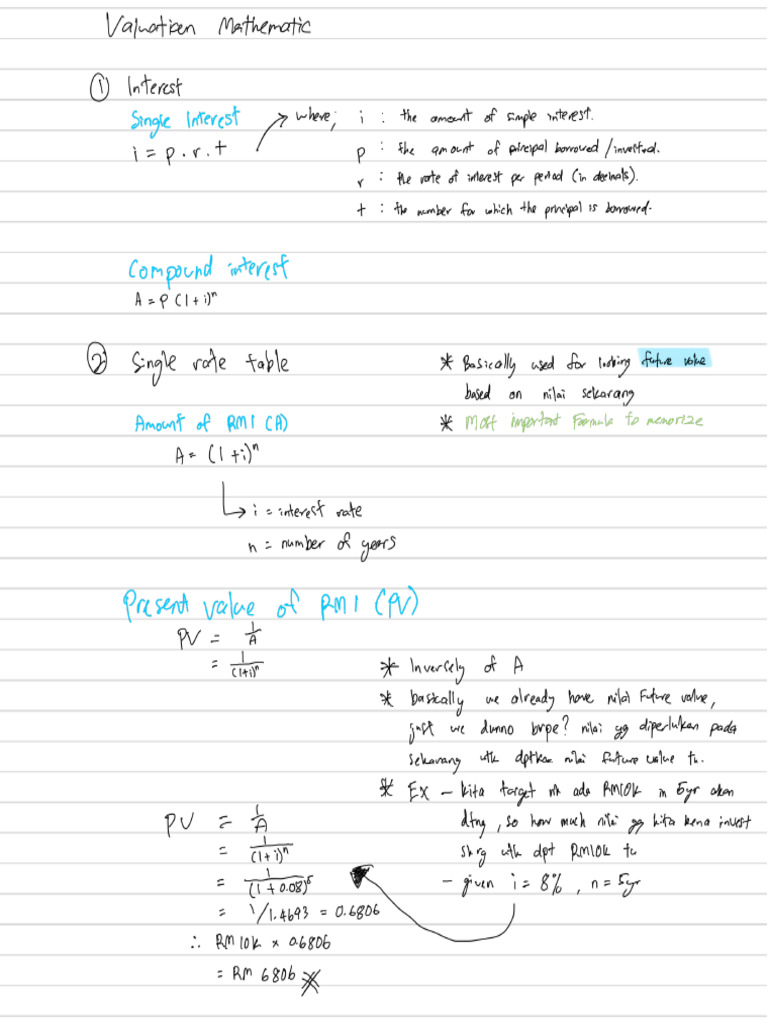 Valuation Mathematic
① Interest
Single Interest
i = p . r . t
→ where; i : the amount of simple interest.
p : the amount of principal borrowed / invested.
r : the rate of interest per period (in decimals).
t : the number for which the principal is borrowed.
Compound interest
A = P (1 + i)ⁿ
② Single rate table
* Basically used for looking future value
based on nilai sekarang
Amount of RM1 (A)
* Most important Formula to memorize
A = (1 + i)ⁿ
↳ i = interest rate
n = number of years
Present value of RM1 (PV)
PV = 1/A
= 1/(1+i)ⁿ
* Inversely of A
* basically we already have nilai Future value,
just we dunno brpe? nilai yg diperlukan pada
sekarang utk dptkan nilai future value tu.
* EX – kita target nk ada RM10K in 5yr akan
dtng, so how much nilai yg kita kena invest
skrg utk dpt RM10K tu
– given i = 8%, n = 5yr
PV = 1/A
= 1/(1+i)ⁿ
= 1/(1 + 0.08)⁵
= 1/1.4693 = 0.6806
∴ RM 10K x 0.6806
= RM 6806 *